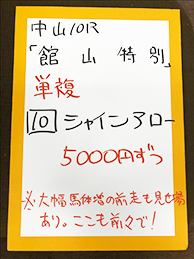 中山10R
「館山特別」
単複
10 シャインアロー
5000円ずつ
※大幅馬体増の前走も見せ場
あり。ここも前々で!